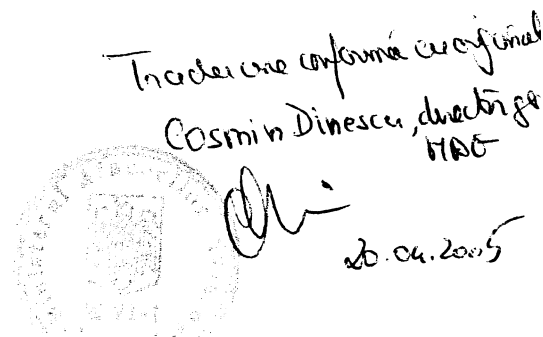 Traducere conformă cu originalul
Cosmin Dinescu, director ge
MAE
20.04.2005